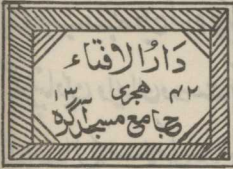 دَارُالافتاء
۱۳ ہجری ۴۲
جامع مسجد آگرہ